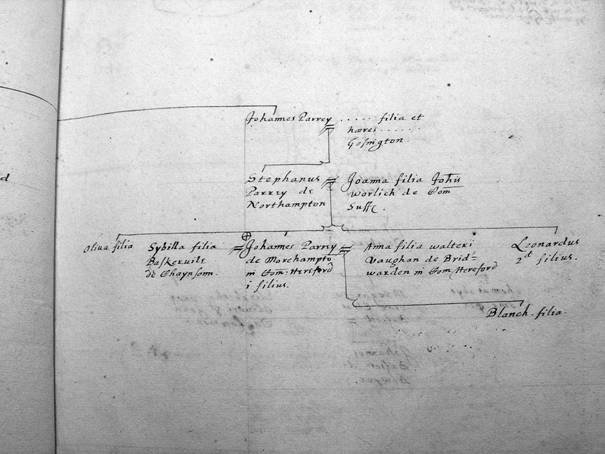 Johannes Parrey
..... filia et
hæres .....
Gossington.
Stephanus
Parrey de
Northampton
Joanna filia John
worlich de Com
Suff.
Oliva filia
Sybilla filia
Baskervile
de Chaynsom.
Johannes Parrey
de Morehampto
in Com. Hereford
i filius.
Anna filia walteri
Vaughan de Brid-
warden in Com. Hereford
Leonardus
2d filius.
Blanch filia.